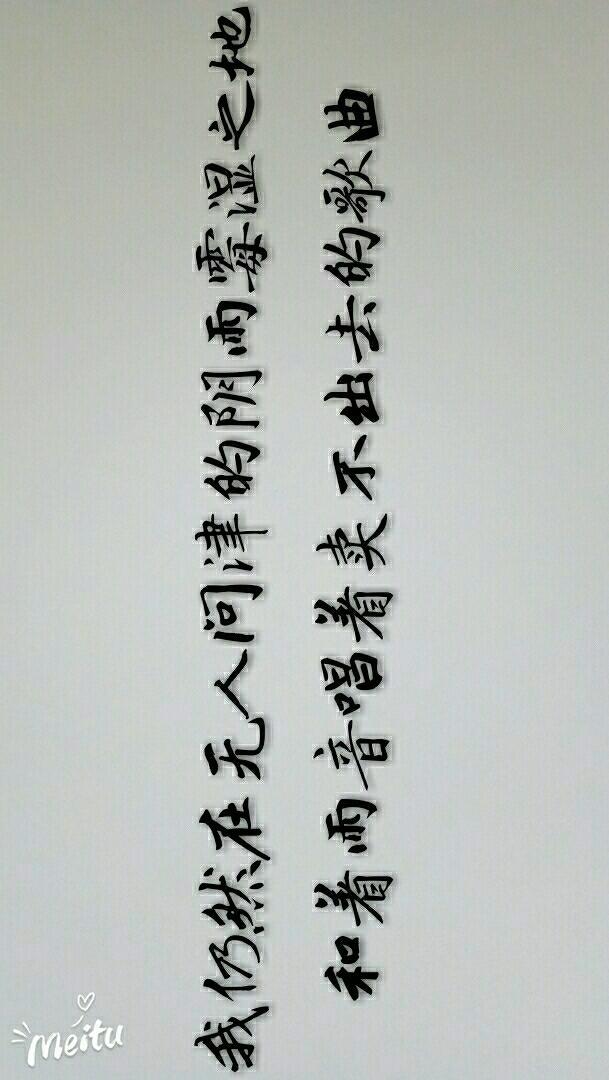 我仍然在无人问津的阴雨霉湿之地
和着雨音唱着卖不出去的歌曲
Meitu